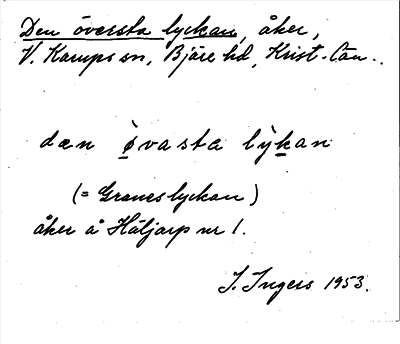 Den översta lyckan, åker,
V. Karups sn, Bjäre hd, Krist. län.
dæn òvasta lỳkan
(= Graneslyckan)
åker å Häljarp nr 1.
I. Ingers 1953.